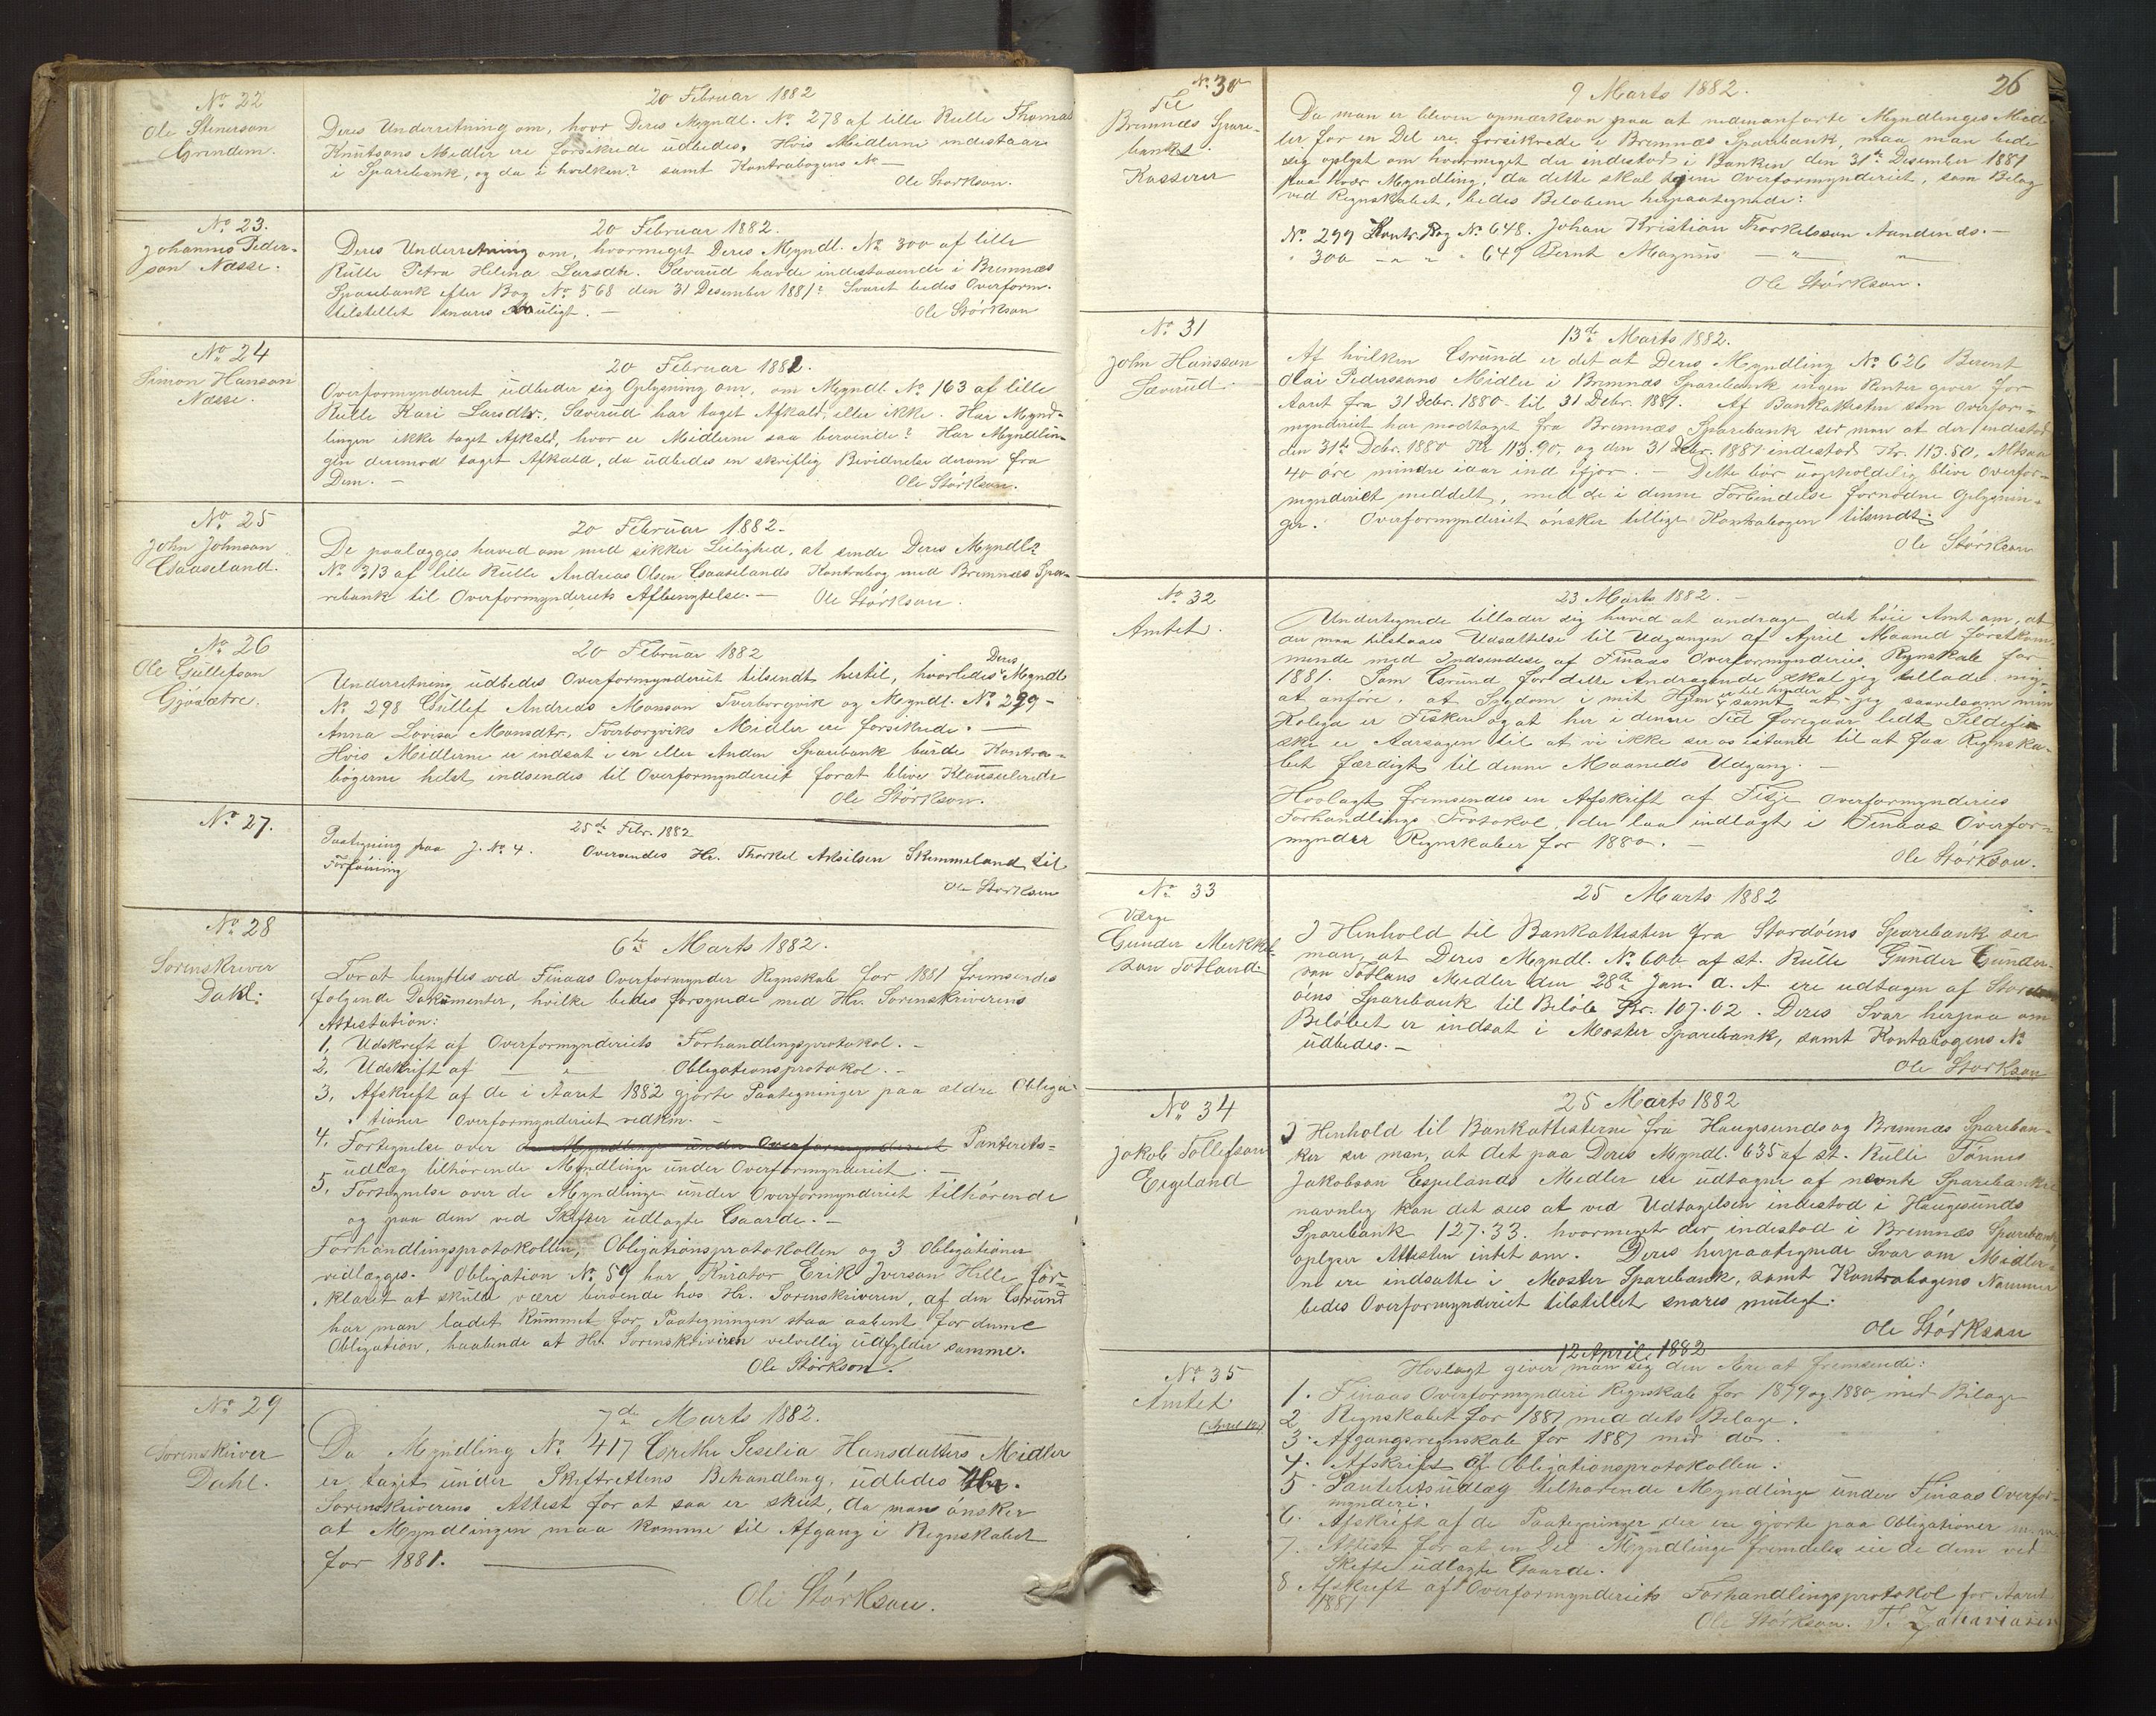 No 22
Ole Stenerson
Grindem.
20 Februar 1882
Deres Underretning om, hvor Deres Myndl. No 278 af lille Rulle Thomas
Knutsons Midler ere forsikrede udbedes. Hvis Midlerne indestaar
i Sparebank, og da i hvilken? samt Kontrabogens No —
Ole Størkson.
No 23.
Johannes Peder-
son Næsse.
20 Februar 1882.
Deres Underretning om, hvormeget Deres Myndl. No 300 af lille
Rulle Petra Helina Larsdtr. Sæverud havde indestaaende i Bremnæs
Sparebank efter Bog No 568 den 31 Desember 1881? Svaret bedes Overform.
tilstillet snares muligt. —
Ole Størkson
No 24
Simon Hanson
Næsse.
20 Februar 1882.
Overformynderiet udbeder sig Oplysning om, om Myndl. No 163 af lille
Rulle Kari Larsdtr. Sæverud har taget Afkald, eller ikke. Har Mynd-
lingen ikke taget Afkald, hvor er Midlerne saa beroende? Har Myndlin-
gen derimod taget Afkald, da udbedes en skriftlig Bevidnelse derom fra
Dem. —
Ole Størkson.
No 25
John Johnson
Gaaseland.
20 Februar 1882.
De paalægges herved om med sikker Leilighed, at sende Deres Myndl.
No 313 af lille Rulle Andreas Olsen Gaaselands Kontrabog med Bremnæs Spa-
rebank til Overformynderiets Afbenyttelse. —
Ole Størkson.
No 26
Ole Gullefson
Gjøsætre.
20 Februar 1882
Underretning udbedes Overformynderiet tilsendt hertil, hvorledes Deres Myndl
No 298 Gullef Andreas Monson Tverborgvik og Myndl. No 299 —
Anna Lovisa Monsdtr. Tverborgviks Midler ere forsikrede. —
Hvis Midlerne er indsat i en eller Anden Sparebank burde Kontra-
bøgerne helst indsendes til Overformynderiet forat blive Klausulerede
Ole Størkson.
No 27.
25de Febr. 1882
Paategning paa J. No 4. Oversendes Hr. Thorkel Akselsen Skimmeland til
Forføining
Ole Størkson
No 28
Sorenskriver
Dahl:
6te Marts 1882.
For at benyttes ved Finaas Overformynder Regnskab for 1881 fremsendes
følgende Dokumenter, hvilke bedes forsynede med Hr. Sorenskriverens
Attestation:
1, Udskrift af Overformynderiets Forhandlingsprotokol. —
2, Udskrift af — " — Obligationsprotokol. —
3, Afskrift af de i Aaret 1882 gjorte Paategninger paa ældre Obliga-
tioner Overformynderiet vedkm. —
4, Fortegnelse over de Myndlinge under Overformynderiet Panterets-
udlæg tilhørende Myndlinge under Overformynderiet. —
5, Fortegnelse over de Myndlinge under Overformynderiet tilhørende
og paa dem ved Skifter udlagte Gaarde. —
Forhandlingsprotokollen, Obligationsprotokollen og 3 Obligationer
vedlægges. Obligation No 59 har Kurator Erik Iverson Hille for-
klaret at skulde være beroende hos Hr. Sorenskriveren, af den Grund
har man ladet Rummet for Paategningen staa aabent for denne
Obligation, haabende at Hr. Sorenskriveren velvillig udfylder samme.
Ole Størkson.
No 29
Sorenskriver
Dahl.
7de Marts 1882.
Da Myndling No 417 Grethe Sesilia Hansdatters Midler
er taget under Skifterettens Behandling, udbedes Hr.
Sorenskriverens Attest for at saa er skeet, da man ønsker
at Myndlingen maa komme til Afgang i Regnskabet
for 1881. —
Ole Størkson.
26
No 30
Til
Bremnæs Spare-
banks
Kasserer
9 Marts 1882.
Da man er bleven opmærksom paa at nedenanførte Myndlinges Mid-
ler for en Del ere forsikrede i Bremnæs Sparebank, maa man bede
sig oplyst om hvormeget der indestod i Banken den 31te Desember 1881
paa hver Myndling, da dette skal tjene Overformynderiet, som Bilag
ved Regnskabet, bedes Beløbene herpaategnede:
No 299 Kontr. Bog No 648. Johan Kristian Thorkelsson
" 300 — " — " 649 Bernt Magnus — " —
Ole Størkson.
No 31
John Hansson
Sæverud.
13de Marts 1882.
Af hvilken Grund er det at Deres Myndling No 626 Berent
Olai Pederssons Midler i Bremnæs Sparebank ingen Renter giver for
Aaret fra 31 Debr. 1880 til 31 Debr. 1881. Af Bankattesten som Overfor-
mynderiet har modtaget fra Bremnæs Sparebank ser man at der indestod
den 31te Debr. 1880 Kr 113.90, og den 31 Debr. 1881 indestod Kr. 113.50, Altsaa
40 øre mindre iaar end ifjor. — Dette bør uopholdelig blive Overfor-
mynderiet meddelt, med de i denne Forbindelse fornødne Oplysnin-
ger. Overformynderiet ønsker tillige Kontrabogen tilsendt.
Ole Størkson
No 32
Amtet.
23 Marts 1882. —
Undertegnede tillader sig herved at andrage det høie Amt om, at
der maa tilstaaes Udsættelse til Udgangen af April Maaned førstkom-
mende med Indsendelse af Finaas Overformynderies Regnskab for
1881. Som Grund for dette Andragende skal jeg tillade mig
at anføre, at Sygdom i mit Hjem er til hinder samt at jeg saavelsom min
Kolega er Fiskere og at her i denne Tid foregaar ledt Sildefi-
ske er Aarsagen til at vi ikke ser os istand til at faa Regnska-
bet færdigt til denne Maaneds Udgang. —
Hoslagt fremsendes en Afskrift af Fitje Overformynderies
Forhandlings Protokol, der laa indlagt i Finaas Overfor-
mynder Regnskaber for 1880. —
Ole Størkson.
No 33
Værge
Gunder Mikkel-
son Totland
25 Marts 1882
I Henhold til Bankattesten fra Stordøens Sparebank ser
man, at Deres Myndl. No 600 af st. Rulle Gunder Gunder-
son Totlans Midler den 28de Jan. d. A. ere udtagen af Stord-
øens Sparebank til Beløb Kr. 107.02. Deres Svar herpaa om
Beløbet er indsat i Moster Sparebank, samt Kontabogens No
udbedes. —
Ole Størkson
No 34
Jakob Tollefson
Eigeland
25 Marts 1882
I Henhold til Bankattesterne fra Haugesunds og Bremnæs Spareban-
ker ser man, at det paa Deres Myndl. 635 af st. Rulle Tønnes
Jakobson Espelands Midler ere udtagne af nævnte Sparebanke
navnlig kan det sees at ved Udtagelsen indestod i Haugesunds
Sparebank 127.33. hvormeget der indestod i Bremnæs Sparebank
oplyser Attesten intet om. Deres herpaategnede Svar om Midler-
ne ere indsatte i Moster Sparebank, samt Kontrabogens Nummer
bedes Overformynderiet tilstillet snares muligt:
Ole Størkson
No 35
Amtet
(April 12)
12 April 1882
Hoslagt giver man sig den Ære at fremsende:
1. Finaas Overformynderi Regnskab for 1879 og 1880 med Bilage
2. Regnskabet for 1881 med dets Bilage.
3. Afgangsregnskab for 1881 med do.
4. Afskrift af Obligationsprotokollen.
5. Panteretsudlæg tilhørende Myndlinge under Finaas Overfor-
mynderi.
6. Afskrift af de Paategninger der ere gjorte paa Obligationer
7. Attest for at en Del Myndlinge fremdeles eie de dem ved
Skifte udlagte Gaarde.
8 Afskrift af Overformynderiets Forhandlingsprotokol for Aaret
1881
Ole Størkson. T. Zakariasen